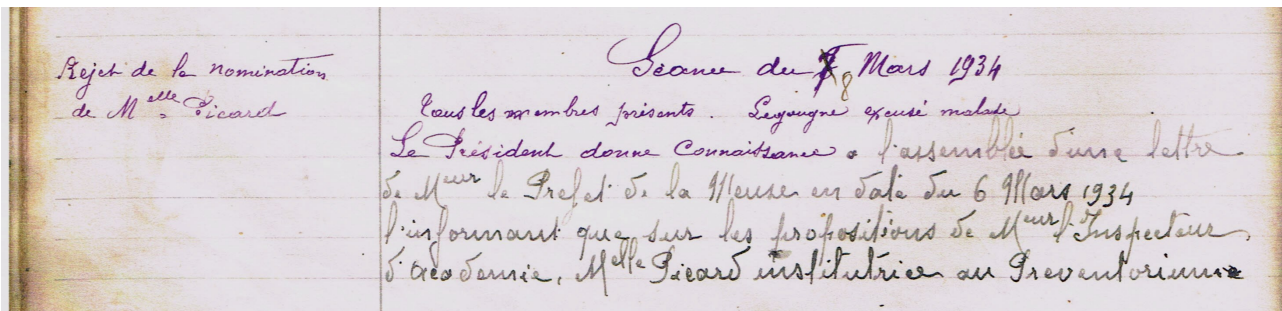 Rejet de la nomination
de Melle Picard
Séance du 8 Mars 1934
Tous les membres présents. Legougne excusé malade
Le Président donne connaissance a l'assemblée d'une lettre
de Meur le Prefet de la Meuse en date du 6 Mars 1934
l'informant que sur les propositions de Meur l'Inspecteur
d'academie, Melle Picard institutrice au Preventorium